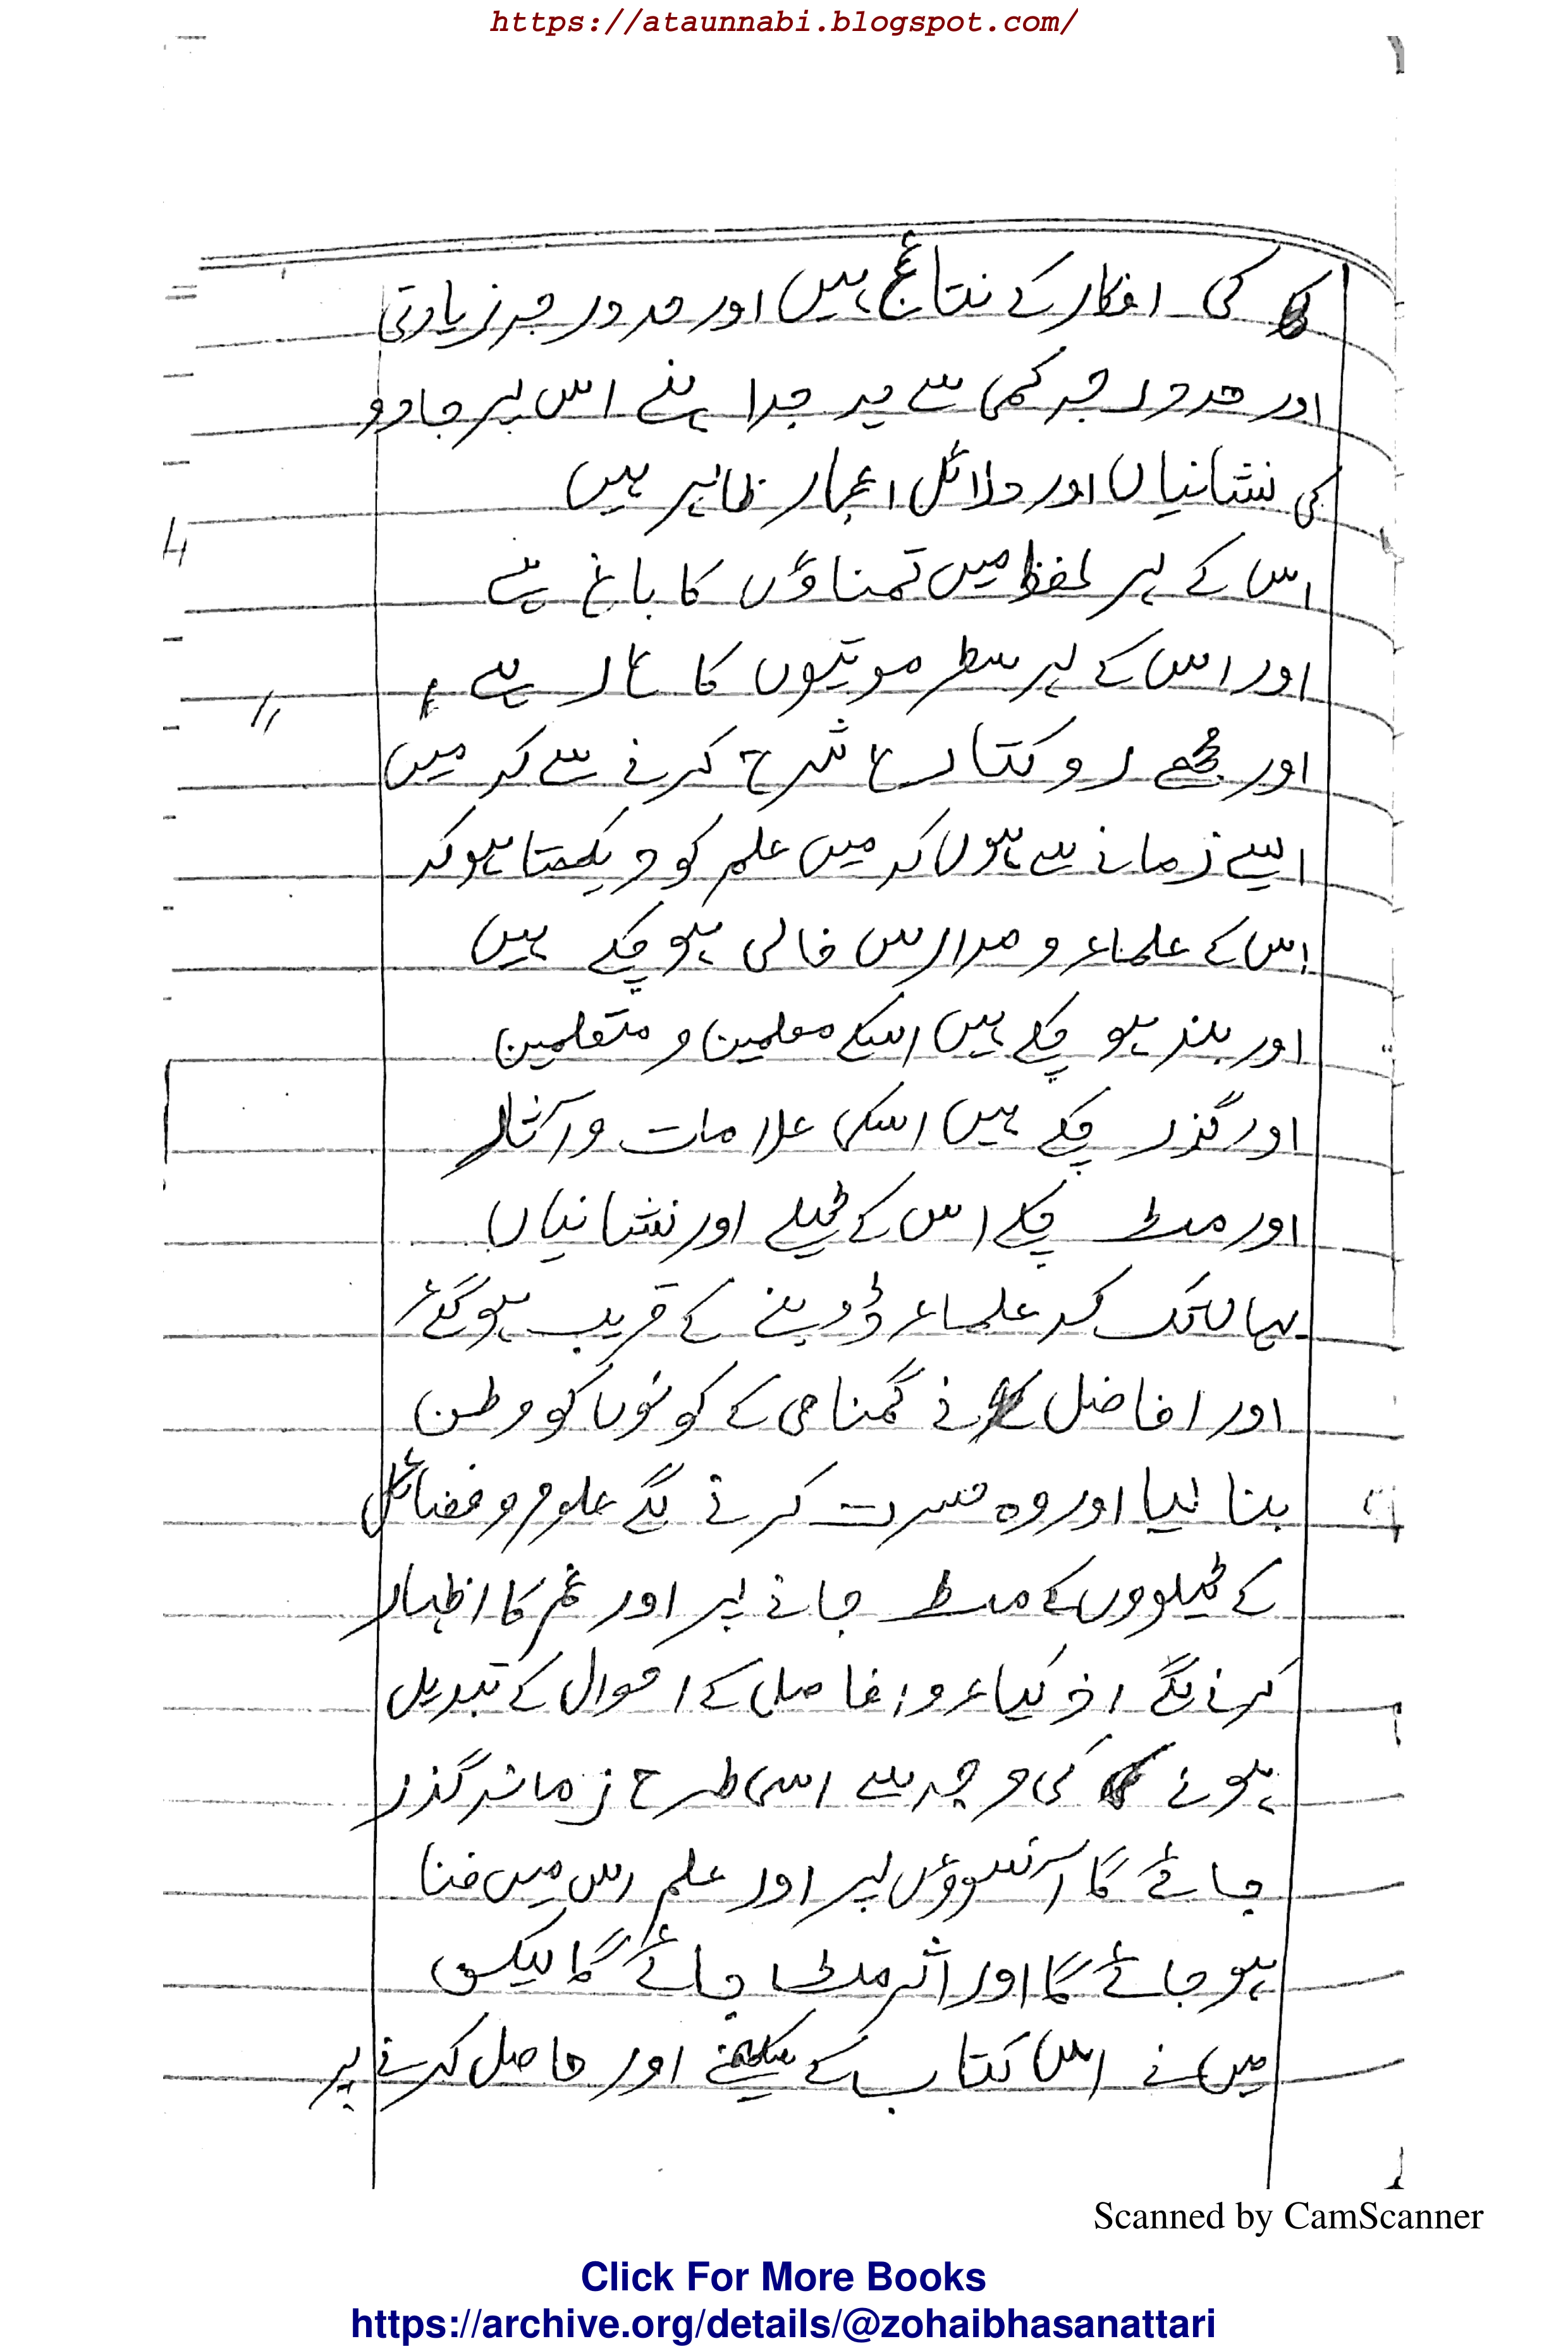 https://ataunnabi.blogspot.com/
کی افکار کے نتائج ہیں اور حد درجہ زیادتی
اور حد درجہ کمی سے یہ جدا ہے اس پر جادو
کی نشانیاں اور دلائل اعجاز ظاہر ہیں
اس کے ہر لفظ میں تمناؤں کا باغ ہے
اور اس کے ہر سطر موتیوں کا ہار ہے
اور مجھے روکتا رہا شرح کرنے سے کہ میں
ایسے زمانے سے ہوں کہ میں علم کو دیکھتا ہو کہ
اس کے علماء و مدارس خالی ہو چکے ہیں
اور بند ہو چکے ہیں اسکے معلمین و متعلمین
اور گذر چکے ہیں اسکی علامات و آثار
اور مٹ چکے اس کے ٹیلے اور نشانیاں
یہاں تک کہ علماء ڈوبنے کے قریب ہو گئے
اور افاضل نے گمنامی کے کونوں کو وطن
بنا لیا اور وہ حسرت کرنے لگے علوم و فضائل
کے ٹیلووں کے مٹ جانے پر اور غم کا اظہار
کرنے لگے اذکیاء و افاضل کے احوال کے تبدیل
ہونے کی وجہ سے اسی طرح زمانہ گذر
جائے گا آنسووں پر اور علم اس میں فنا
ہو جائے گا اور اثر مٹ جائے گا لیکن
میں نے اس کتاب کے سیکھنے اور حاصل کرنے پر
Scanned by CamScanner
Click For More Books
https://archive.org/details/@zohaibhasanattari